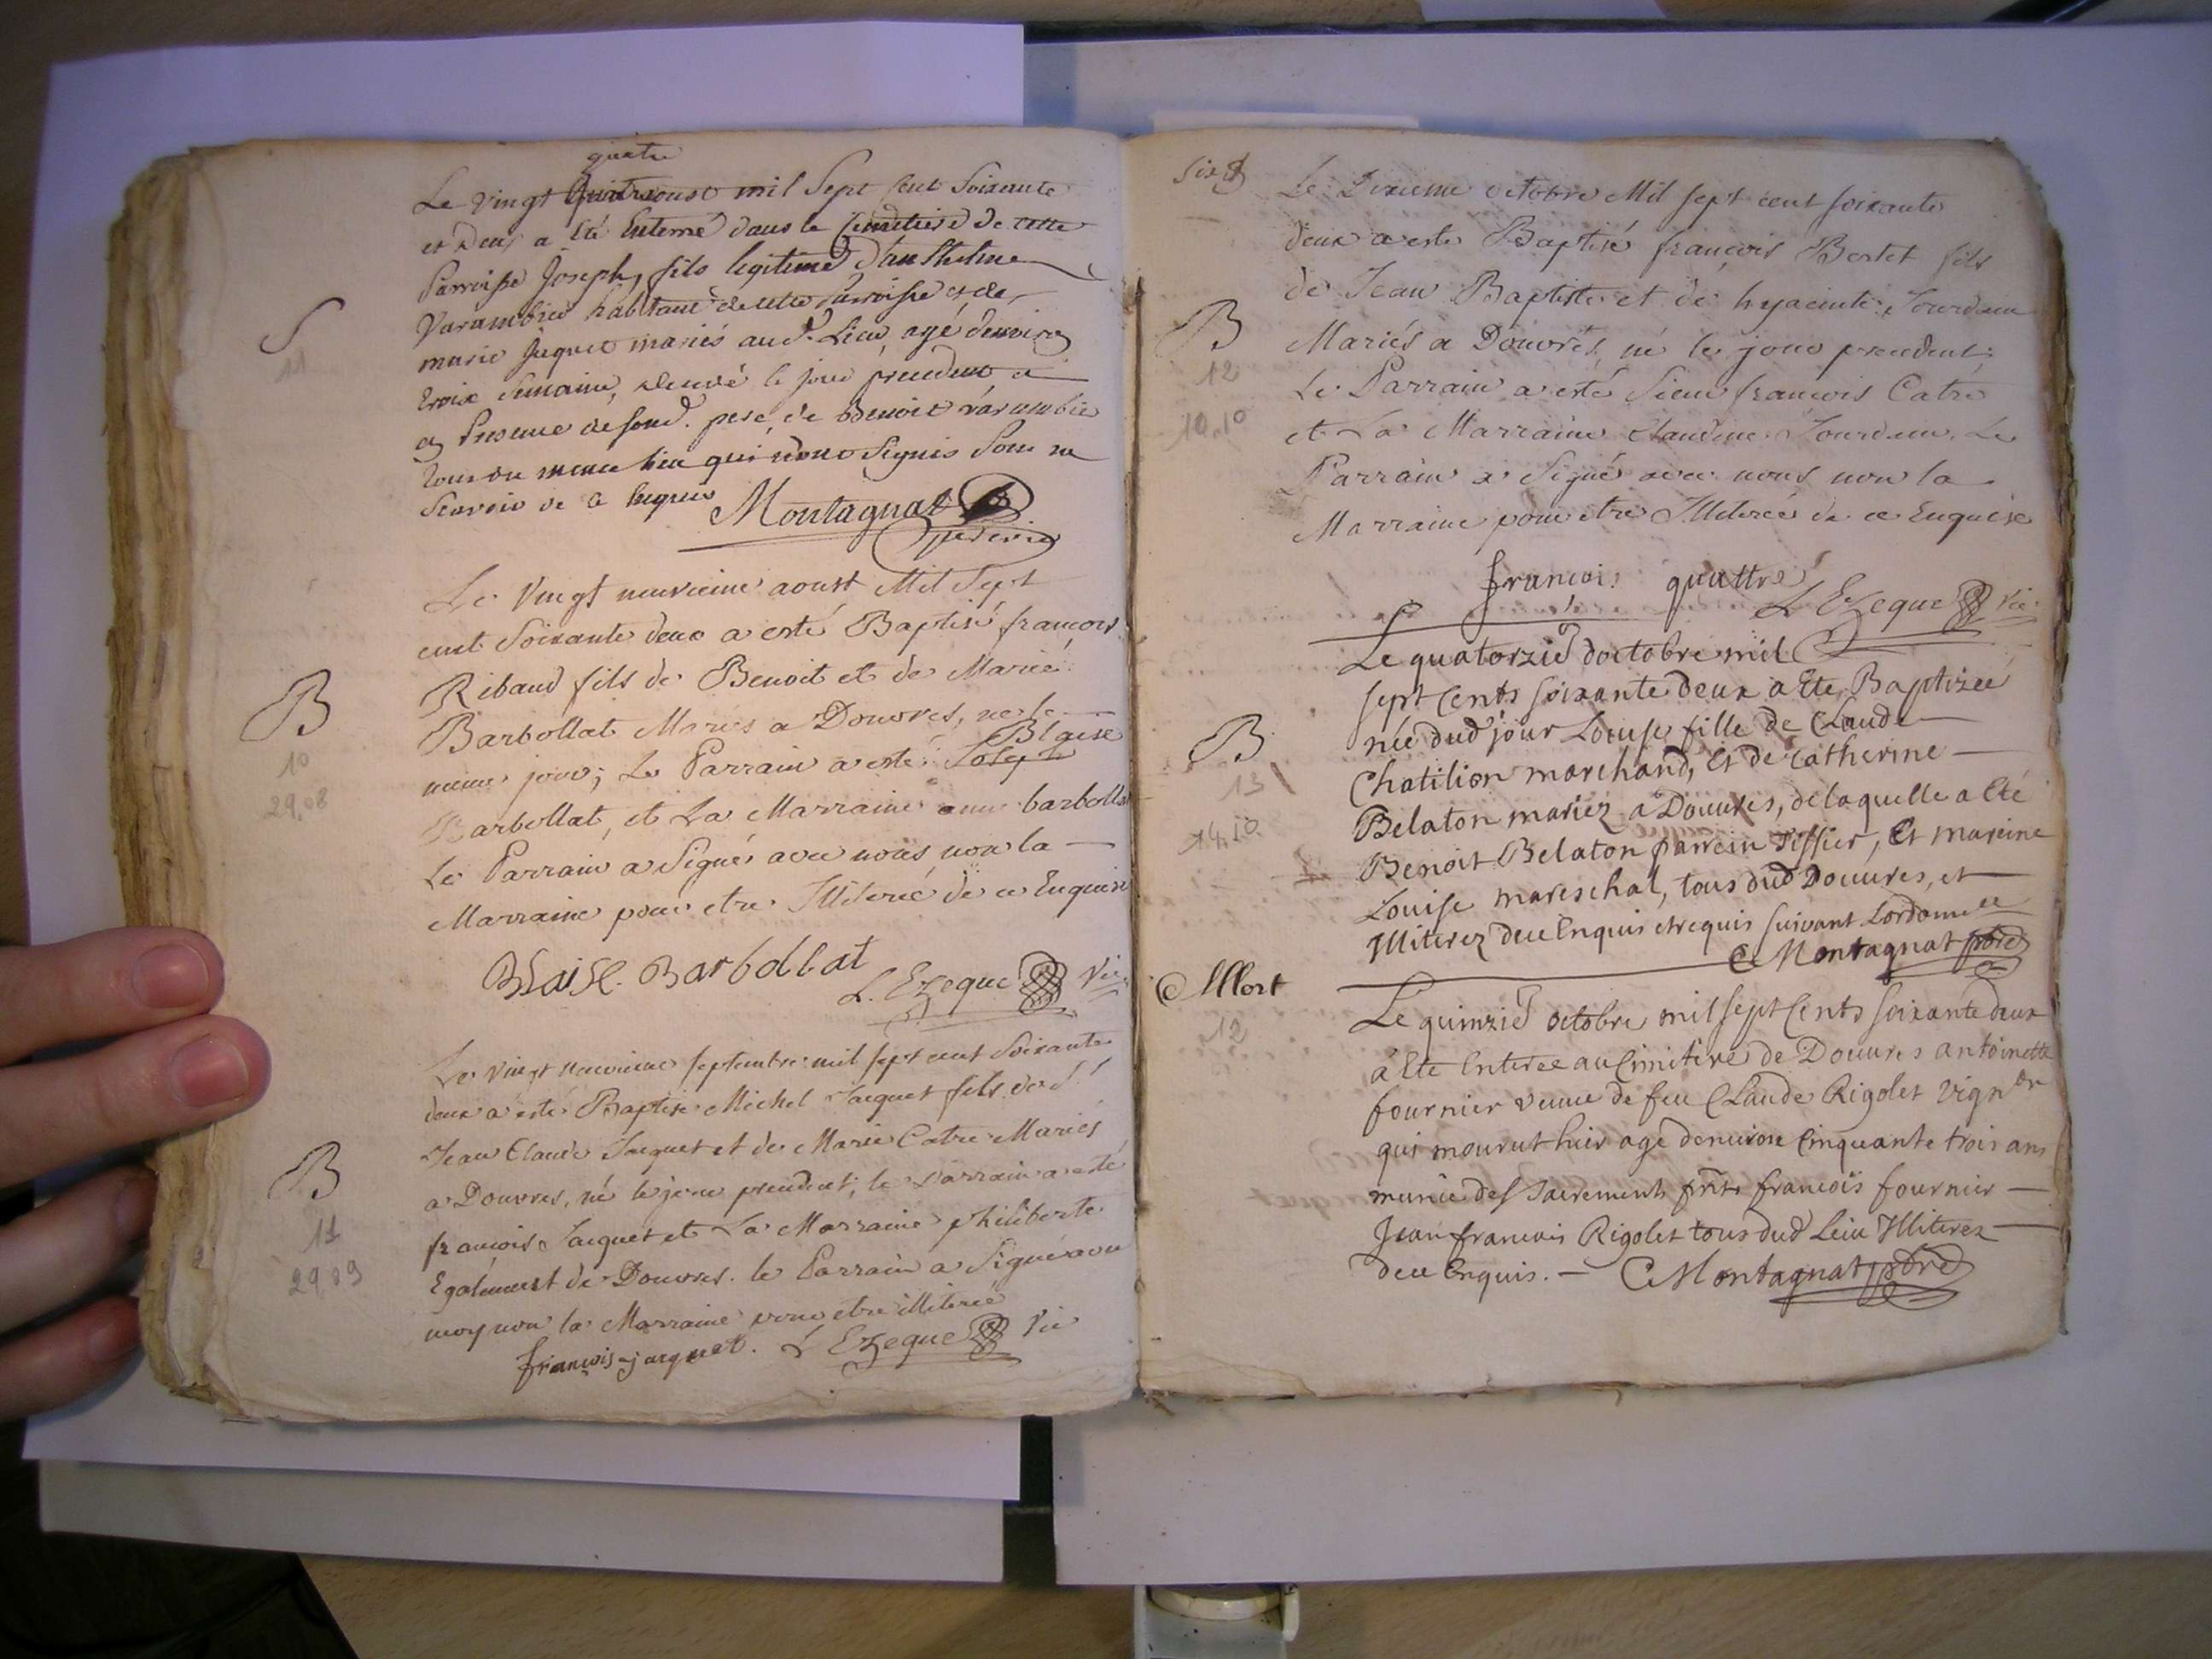 quatre
Le vingt aoust mil Sept Cent Soixante
et Deux a été Enterré dans le Cimetiere de cette
Parroisse Joseph, fils legitime d'anthelme
Varambier habitant de cette Parroisse et de
marie Jaquet mariés aud. Lieu, agé denviron
trois Semaine, decedé le jour precedent
en Presence de sond. pere, de Benoit varambie
tous du meme lieu qui nont Signés pour ne
Scavoir de ce Enquis Montagnat
S
11
Le Vingt neuvieme aoust Mil Sept
cent Soixante deux a esté Baptisé francois
Ribaud fils de Benoit et de Marie
Barbollat Mariés a Douvres, né le
Blaise
meme jour; Le Parrain a esté Joseph
Barbollat, et La Marraine anne barbollat
Le Parrain a Signé avec nous non la
Marraine pour etre Illiterée de ce Enquise
B
10
29.08
Blaise Barbollat
L. Ezeque Vic
Le vingt neuvieme septembre mil sept cent Soixante
deux a esté Baptisé Michel Jacquet fils de S.
Jean Claude Jacquet et de Marie Catre Mariés
a Douvres, né le jour precedent; le Parrain a esté
francois Jacquet et La Marraine philiberte
Egalement de Douvres. le Parrain a Signé avec
moy non la Marraine pour etre illiterée
B
11
29.09
francois jacquet. L Ezeque Vic
six
Le Dixieme octobre Mil sept cent soixante
deux a este Baptisé francois Bertet fils
de Jean Baptiste et de hyacinte Jourdain
Mariés a Douvres, né le jour precedent;
Le Parrain a esté Sieur francois Catre
et La Marraine Claudine Jourdain. Le
Parrain a Signé avec nous non la
Marraine pour etre Illiterée de ce Enquise
B
12
10.10
francois quattre
L Ezeque Vic
Le quatorzie doctobre mil
sept Cents soixante deux a Ete Baptizée
née dud jour Louise fille de Claude
Chatilion marchand, et de Catherine
Belaton mariez a Douvres, de laquelle a Eté
Benoit Belaton parrein Tissier, et mareine
Louise mareschal, tous dud Douvres, et
Illiterez dece Enquis et requis suivant Lordonnce
CMontagnat pbre
B
13
14.10
Mort
12
Le quinzie octobre mil sept Cents soixante deux
à Ete Enterée au Cimitire de Douvres antoinette
fournier veuve de feu Claude Rigolet Vignon
qui mourut hier agé denviron Cinquante trois ans
munie des Sacrements prnts francois fournier
Jean francois Rigolet tous dud Leiu Illiterez
dece Enquis. CMontagnat pbre